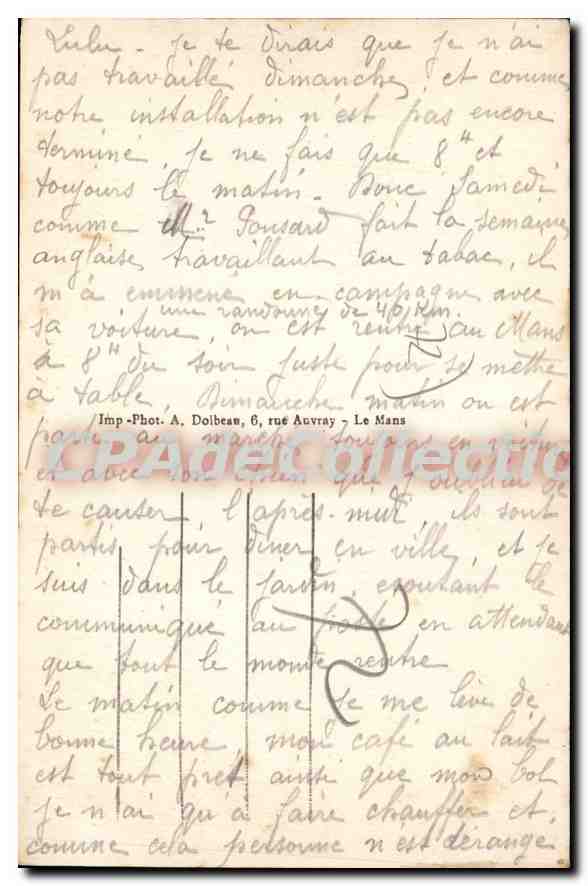 Lulu - je te dirais que je n'ai
pas travaillé dimanche, et comme
notre installation n'est pas encore
terminé, je ne fais que 8 H et
toujours le matin - Donc Samedi
comme Mr Ponsard fait la semaine
anglaise travaillant au tabac, il
m'a emmené en campagne avec
une randonnée de 40 Km.
sa voiture, on est rentré au Mans
à 8 H du soir juste pour se mettre
à table, Dimanche matin on est
Imp-Phot. A. Dolbeau, 6, rue Auvray - Le Mans
parti au marché toujours en voiture
CPAdeCollection
et avec son chien que j'oubliai de
te causer, l'après-midi, ils sont
partis pour diner en ville, et je
suis dans le jardin, écoutant le
communiqué au poste en attendant
que tout le monde rentre
Le matin comme je me lève de
bonne heure, mon café au lait
est tout prêt ainsi que mon bol
je n'ai qu'à faire chauffer et,
comme cela personne n'est dérangé